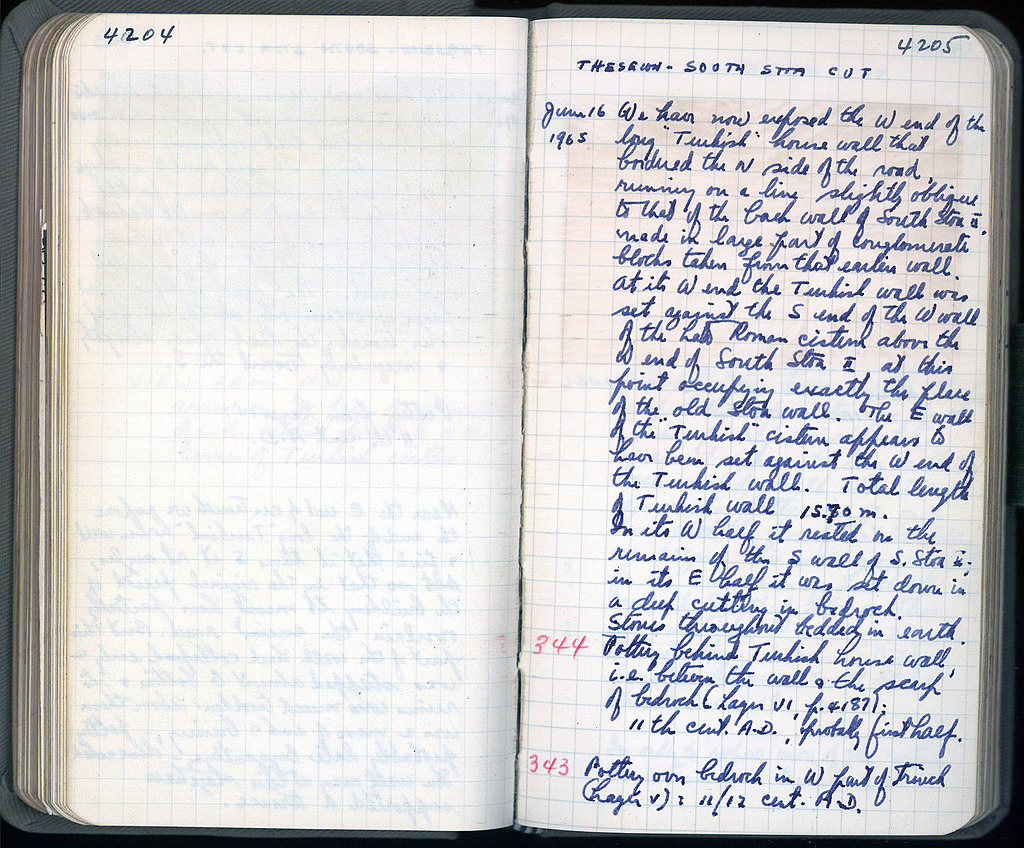 4204
4205
THESEION - SOUTH STOA CUT
June 16 We have now exposed the W end of the
1965 long "Turkish" house wall that
bordered the N side of the road,
running on a line slightly oblique
to that of the back wall of South Stoa II,
made in large part of conglomerate
blocks taken from that earlier wall.
At its W end the Turkish wall was
set against the S end of the W wall
of the late Roman cistern above the
W end of South Stoa II at this
point occupying exactly the place
of the old Stoa wall. The E wall
of the "Turkish" cistern appears to
have been set against the W end of
the Turkish wall. Total length
of Turkish wall 15.70 m.
In its W half it rested on the
remains of the S wall of S. Stoa II.
in its E half it was set down in
a deep cutting in bedrock.
Stones throughout bedded in earth.
344 Pottery behind Turkish house wall
i.e. between the wall & the scarp
of bedrock (Layer VI, p. 4187):
11th cent. A.D., probably first half.
343 Pottery over bedrock in W part of Trench
(Layer V): 11/12 cent. A.D.